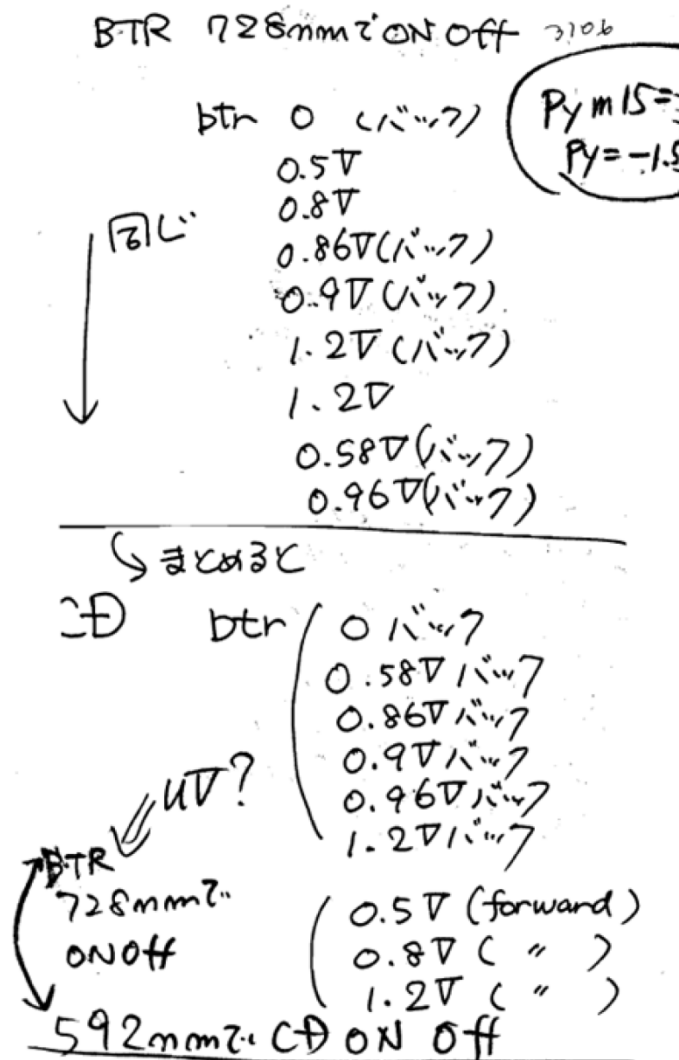 BTR 728nmで ON Off 3106
Pym15=
Py=-1.5
btr 0 (バック)
0.5V
0.8V
同じ
0.86V(バック)
0.9V(バック)
1.2V(バック)
1.2V
0.58V(バック)
0.96V(バック)
まとめると
CD btr 0 バック
0.58V バック
0.86V バック
0.9V バック
0.96V バック
1.2V バック
UV?
BTR
728nmで
ON Off
0.5V (forward)
0.8V ( 〃 )
1.2V ( 〃 )
592nmで CD ON Off